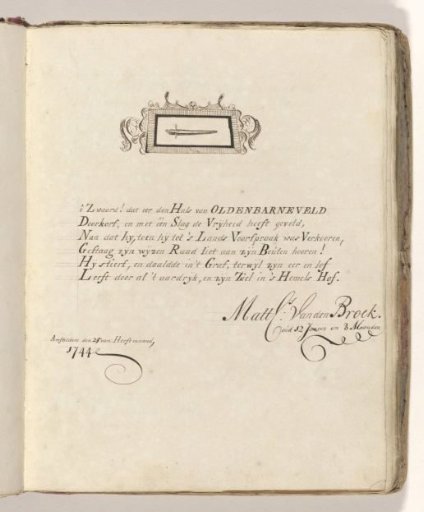 't Zwaard! dat eer den Hals van OLDENBARNEVELD
Doorkorf, en met één Slag de Vryheid heeft geveld,
Nan dat hy, toen hy tot 's Lands Voorspraak was Verkooren,
Gestaag zyn wyzen Raad liet aan zyn Buiten hooren!
Hy sterft, en daaldde in 't Graf, terwyl zyn eer en lof
Leeft door al 't aardryk, en zyn Ziel in 's Hemels Hof.
Matt.s Van den Broek.
oud 52 Jaaren en 8 Maanden
Amsteldam den van Herfstmaand,
1744